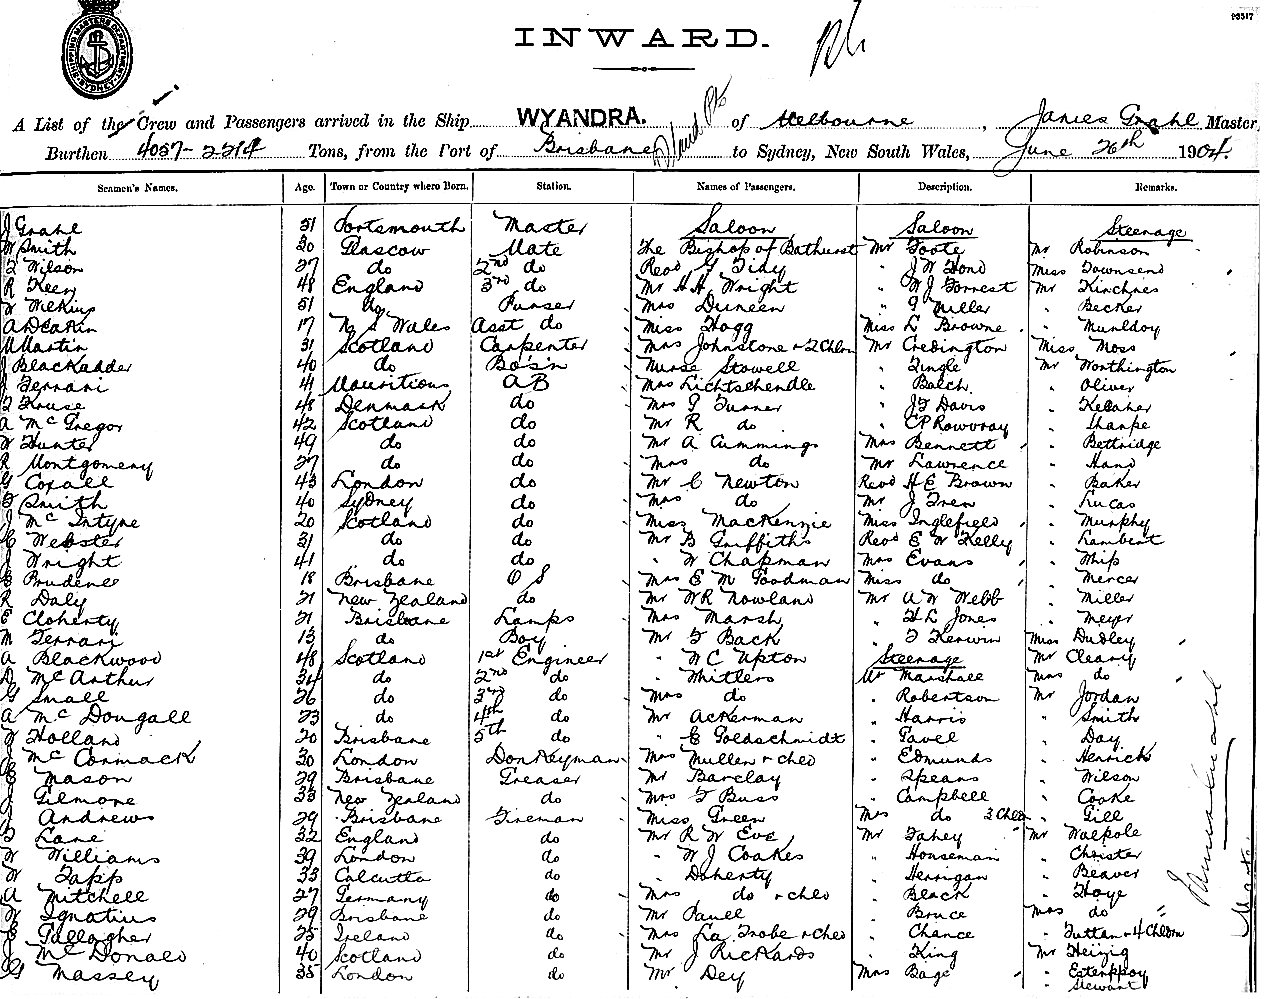 93517
SHIPPING MASTER'S DEPARTMENT SYDNEY
INWARD.
A List of the Crew and Passengers arrived in the Ship WYANDRA. of Melbourne, James Grahl Master
Burthen 4057-2214 Tons, from the Port of Brisbane to Sydney, New South Wales, June 26th 1904.
Seamen's Names. Age. Town or Country where Born. Station. Names of Passengers. Description. Remarks.
J Grahl 51 Portsmouth Master Saloon Saloon Steerage
W Smith 30 Glascow Mate The Bishop of Bathurst Mr Foote Mr Robinson
Wilson 27 do 2nd do Revd G Tidy " J W Hono Miss Townsend
R Keen 48 England 3rd do Mr H H Wright " W J Forrest Mr Kirchnes
Wilkins 51 Purser Mrs Duneen " Miller " Becker
A Deakin 17 N S Wales Asst do Miss Hogg Miss L Browne " Munldoy
Martin 31 Scotland Carpenter Mrs Johnstone + 2 Chln Mr Credington Miss Moss
J Blackadder 40 do Bo'sn Nurse Stowell " Tingle Mr Worthington
J Ferrari 41 Mauritious A B Mrs Lichtschendle " Balch " Oliver
Kruse 48 Denmark do Mrs Turner " J T Davis " Kelaher
A McGregor 42 Scotland do Mr R do " C P Rowvray " Sharpe
W Hunter 49 do do Mr A Cummings Mrs Bennett " Bettridge
R Montgomery 27 do do Mrs do Mr Lawrence " Hand
G Coxall 43 London do Mr C Newton Revd H E Brown " Baker
Smith 40 Sydney do Mrs do Mr J Tren " Lucas
J McIntyre 20 Scotland do Miss MacKenzie Miss Inglefield " Murphy
C Webster 31 do do Mr B Griffiths Revd E W Kelly " Lambert
J Wright 41 do do " W Chapman Mrs Evans " Whip
Prudence 18 Brisbane O S Mrs E M Goodman Miss do " Mercer
R Daly 21 New Zealand do Mr W R Nowland Mr A W Webb " Miller
E Cloherty 21 Brisbane Lamps Mrs Marsh " H L Jones " Meyer
M Ferrari 15 do Boy Mr F Back " F Kerwin Miss Dudley
A Blackwood 48 Scotland 1st Engineer " W C Upton Steerage Mr Cleary
D McArthur 34 do 2nd do " Whitlers Mr Marshall Mrs do
G Small 26 do 3rd do Mrs do " Robertson Mr Jordan
A McDougall 23 do 4th do Mr Ackerman " Harris " Smith
Holland 20 Brisbane 5th do " E Goldschmidt " Pavel " Day
J McCormack 30 London Donkeyman Mrs Mullen + chld " Edmunds " Herrick
Mason 29 Brisbane Greaser Mr Barclay " Spears " Wilson
J Gilmore 33 New Zealand do Mrs F Buss " Campbell " Cooke
J Andrews 29 Brisbane Fireman Miss Green Mrs do 3 Chln " Gill
Lane 32 England do Mr R W Eve Mr Fahey Mr Walpole
W Williams 39 London do " W J Coakes " Houseman " Christer
W Tapp 33 Calcutta do " Doherty " Herrigan " Beaver
A Mitchell 27 Germany do Mrs do + chld " Black " Hoye
W Ignatius 29 Brisbane do Mr Pavell " Bruce Mrs do
E Gallagher 25 Ireland do Mrs La Trobe + chld " Chance " Tuttan + 4 Chldn
J McDonald 40 Scotland do Mr J Rickards " King Mr Heijig
G Massey 35 London do Mr Dey Mrs Bage " Esterppoy
" Stewart